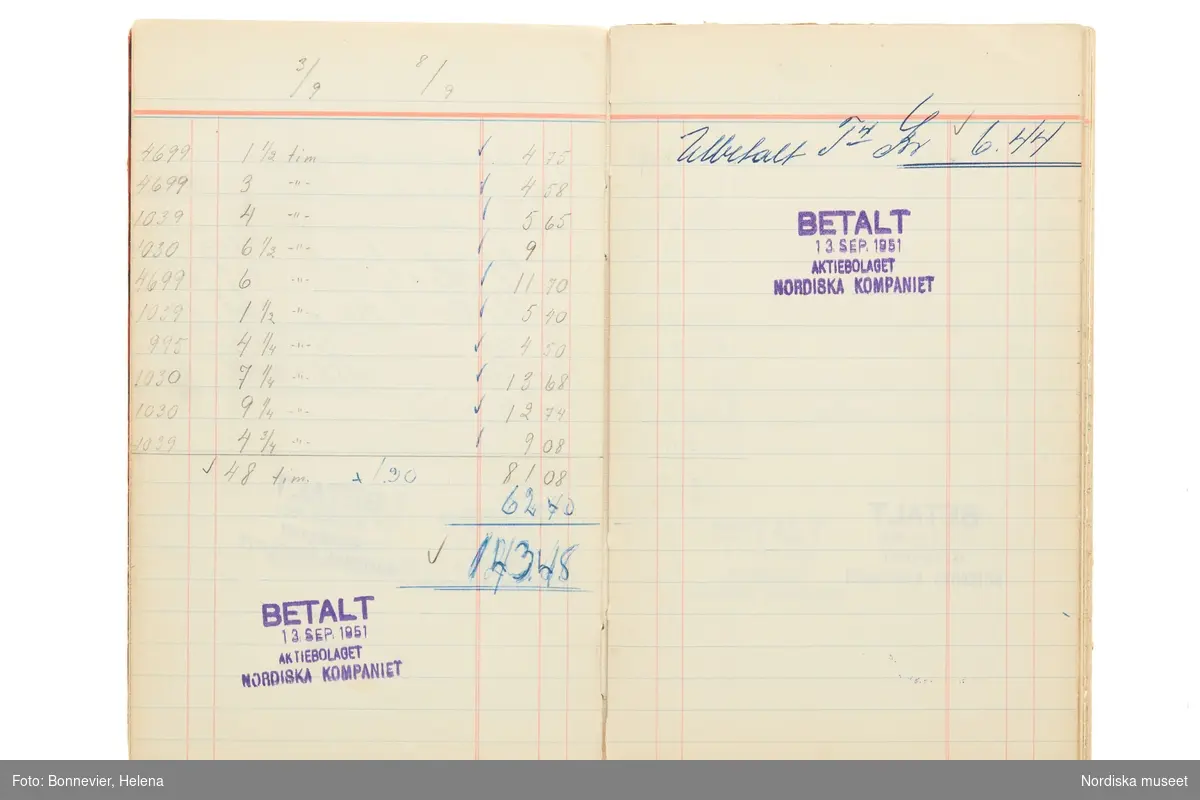 3/9 8/9
4699 1 1/2 tim 4 75
4699 3 -"- 4 58
1039 4 -"- 5 65
1030 6 1/2 -"- 9
4699 6 -"- 11 70
1039 1 1/2 -"- 5 40
995 4 1/4 -"- 4 50
1030 7 1/4 -"- 13 68
1030 9 1/4 -"- 12 74
1039 4 3/4 -"- 9 08
48 tim. 1.90 81 08
62 40
143.48
BETALT
13. SEP. 1951
AKTIEBOLAGET
NORDISKA KOMPANIET
Utbetalt Kr 6.44
BETALT
13 SEP. 1951
AKTIEBOLAGET
NORDISKA KOMPANIET
Foto: Bonnevier, Helena
Nordiska museet